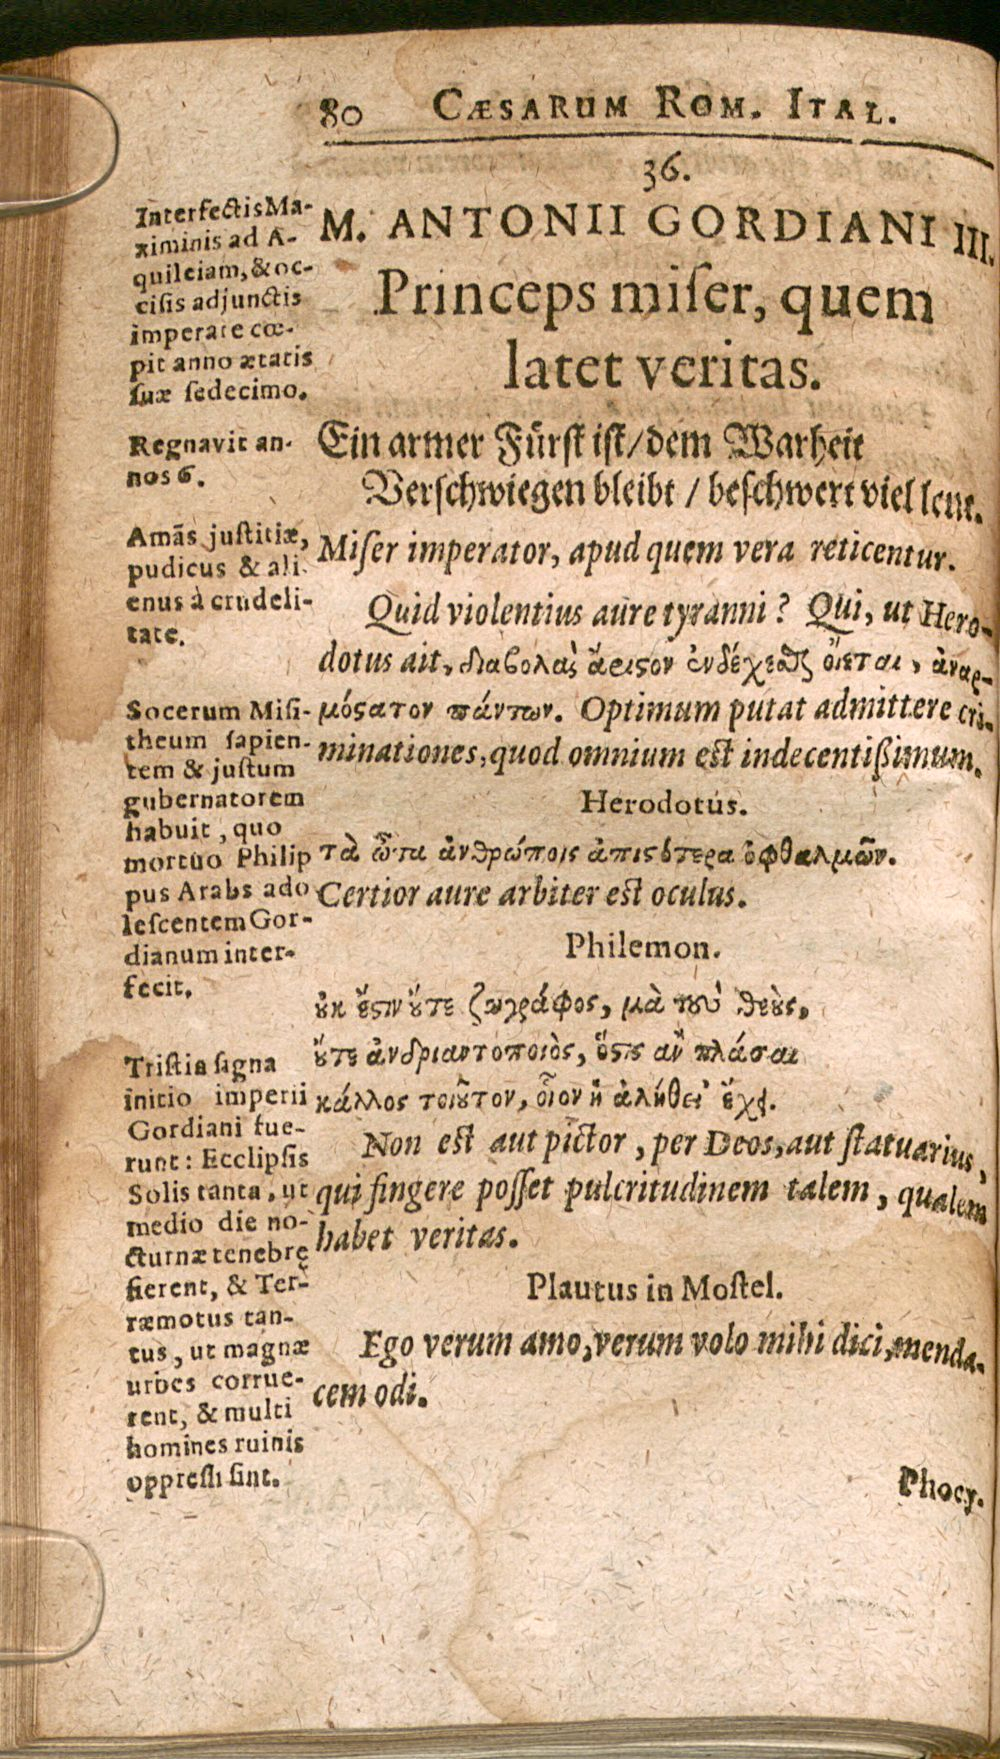 80 CÆSARUM ROM. ITAL.
36.
M. ANTONII GORDIANI III.
Princeps miſer, quem
latet veritas.
Ein armer Fürſt iſt/dem Warheit
Verſchwiegen bleibt / beſchwert viel leut.
Miſer imperator, apud quem vera reticentur.
Quid violentius aure tyranni? Qui, ut Hero-
dotus ait, διαβολαὶ ἄριςον ἐνδέχεσθαι ὄιεται, ἀναρ-
μόςατον πάντων. Optimum putat admittere cri-
minationes, quod omnium est indecentißimum.
Herodotus.
τὰ ὦτα ἀνθρώποις ἀπιςότερα ὀφθαλμῶν.
Certior aure arbiter est oculus.
Philemon.
ȣ̓κ ἔςιν ȣ̓́τε ζωγράφος, μὰ τȣ̀ς θεȣ̀ς,
ȣ̓́τε ἀνδριαντοποιὸς, ὅςις ἂν πλάσαι
κάλλος τοιȣ̃τον, οἷον ἡ ἀλήθει' ἔχει.
Non est aut pictor, per Deos, aut ſtatuarius,
qui fingere poſſet pulcritudinem talem, qualem
habet veritas.
Plautus in Moſtel.
Ego verum amo, verum volo mihi dici, menda-
cem odi.
Phocy.
Interfectis Ma-
ximinis ad A-
quileiam, & oc-
ciſis adjunctis
imperare cœ-
pit anno ætatis
ſuæ ſedecimo.
Regnavit an-
nos 6.
Amãs juſtitiæ,
pudicus & ali-
enus à crudeli-
tate.
Socerum Miſi-
theum ſapien-
tem & juſtum
gubernatorem
habuit, quo
mortuo Philip
pus Arabs ado
leſcentem Gor-
dianum inter-
fecit.
Triſtia ſigna
initio imperii
Gordiani fue-
runt: Ecclipſis
Solis tanta, ut
medio die no-
cturnæ tenebrę
fierent, & Ter-
ræmotus tan-
tus, ut magnæ
urbes corrue-
rent, & multi
homines ruinis
oppreſſi ſint.